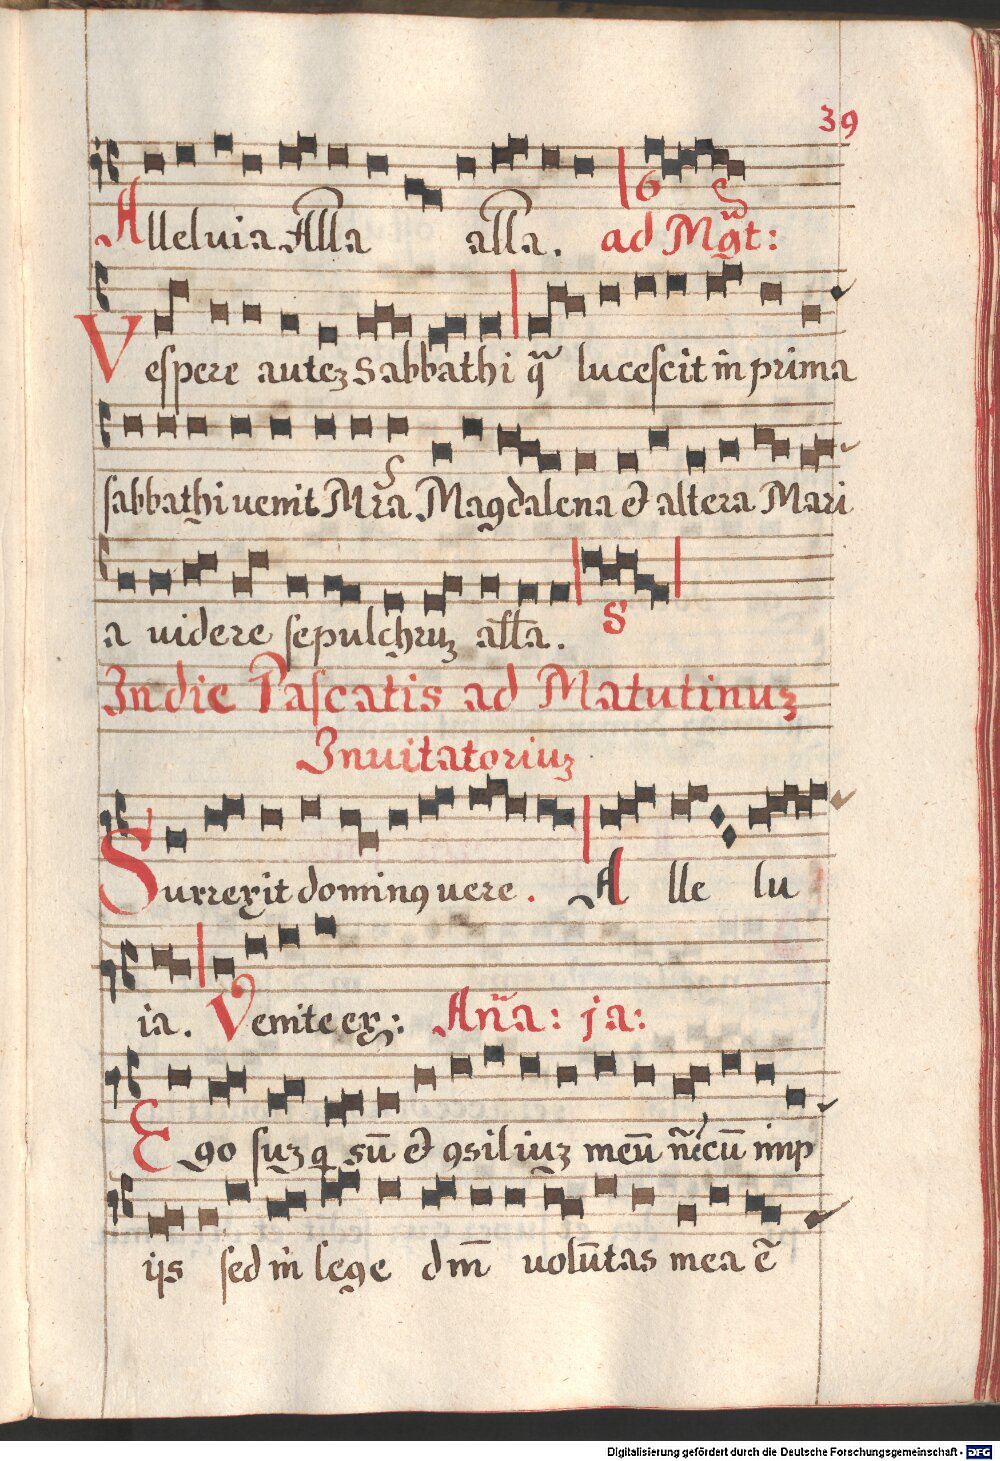 39
Alleluia Alla alla. 6 ad Mgt:
Vespere autez sabbathi q̃ lucescit in prima
sabbathi uenit Mra Magdalena et altera Mari
a uidere sepulchruz alla. 8
In die Pascatis ad Matutinuz
Inuitatoriuz
Surrexit dominꝯ uere. Alle lu
ia. Venite ex: Aña: ja:
Ego suz q sū et ꝯsiliuz meū ñ ē cū imp
ijs sed in lege dm̄ uolūtas mea ē
Digitalisierung gefördert durch die Deutsche Forschungsgemeinschaft - DFG